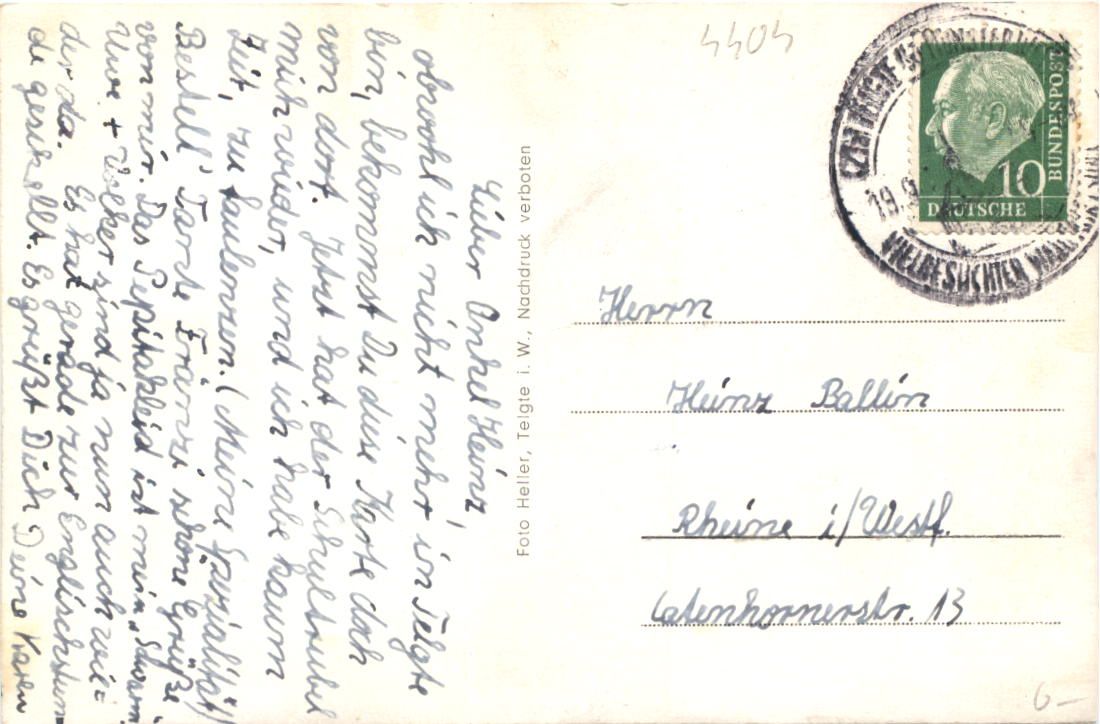 Lieber Onkel Heinz,
obwohl ich nicht mehr in Telgte
bin, bekommst Du diese Karte doch
von dort. Jetzt hat der Schultrubel
mich wieder, und ich habe kaum
Zeit, zu faulenzen. (Meine Spezialität)!
Bestell' Tante Fränzi schöne Grüße
von mir. Das Pepitakleid ist mein „Schwarm"
Uwe + Volker sind ja nun auch wie=
der da. Es hat gerade zur Englischstun=
de geschellt. Es grüßt Dich Deine Karen
Foto Heller, Telgte i. W., Nachdruck verboten
4404
10
DEUTSCHE
BUNDESPOST
TELGTE
19.9.
VIELBESUCHTER
Herrn
Heinz Ballin
Rheine i/Westf.
Catenhornerstr. 13
6-